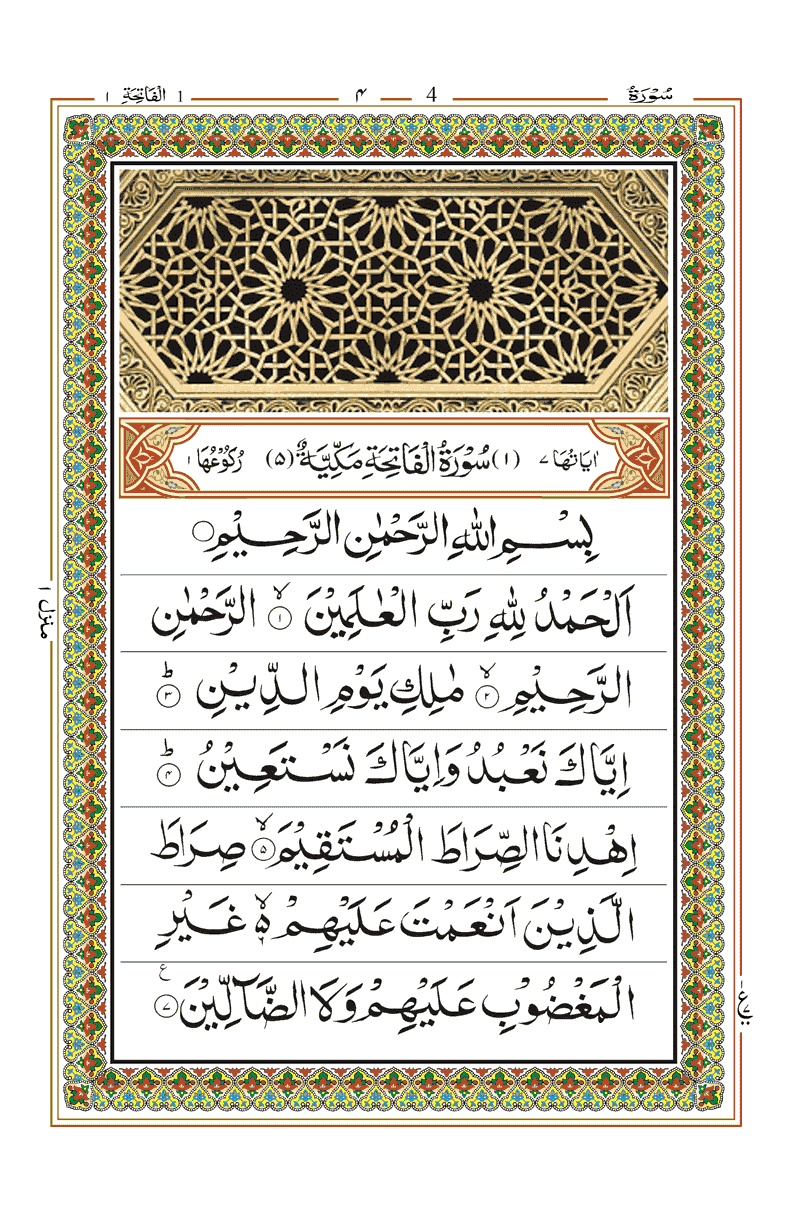 سُوْرَةُ ۴ 4 1 اَلْفَاتِحَةِ ۱
اٰيَاتُهَا ۷ (۱) سُوْرَةُ الْفَاتِحَةِ مَكِّيَّةٌ (۵) رُكُوْعُهَا ۱
بِسْمِ اللّٰهِ الرَّحْمٰنِ الرَّحِيْمِ ۝
اَلْحَمْدُ لِلّٰهِ رَبِّ الْعٰلَمِيْنَ ۙ﴿۱﴾ الرَّحْمٰنِ
الرَّحِيْمِ ۙ﴿۲﴾ مٰلِكِ يَوْمِ الدِّيْنِ ؕ﴿۳﴾
اِيَّاكَ نَعْبُدُ وَاِيَّاكَ نَسْتَعِيْنُ ؕ﴿۴﴾
اِهْدِنَا الصِّرَاطَ الْمُسْتَقِيْمَ ۙ﴿۵﴾ صِرَاطَ
الَّذِيْنَ اَنْعَمْتَ عَلَيْهِمْ ۙ۵ غَيْرِ
الْمَغْضُوْبِ عَلَيْهِمْ وَلَا الضَّآلِّيْنَ ﴿۷﴾ ع
منزل ۱
۱ ع ۷